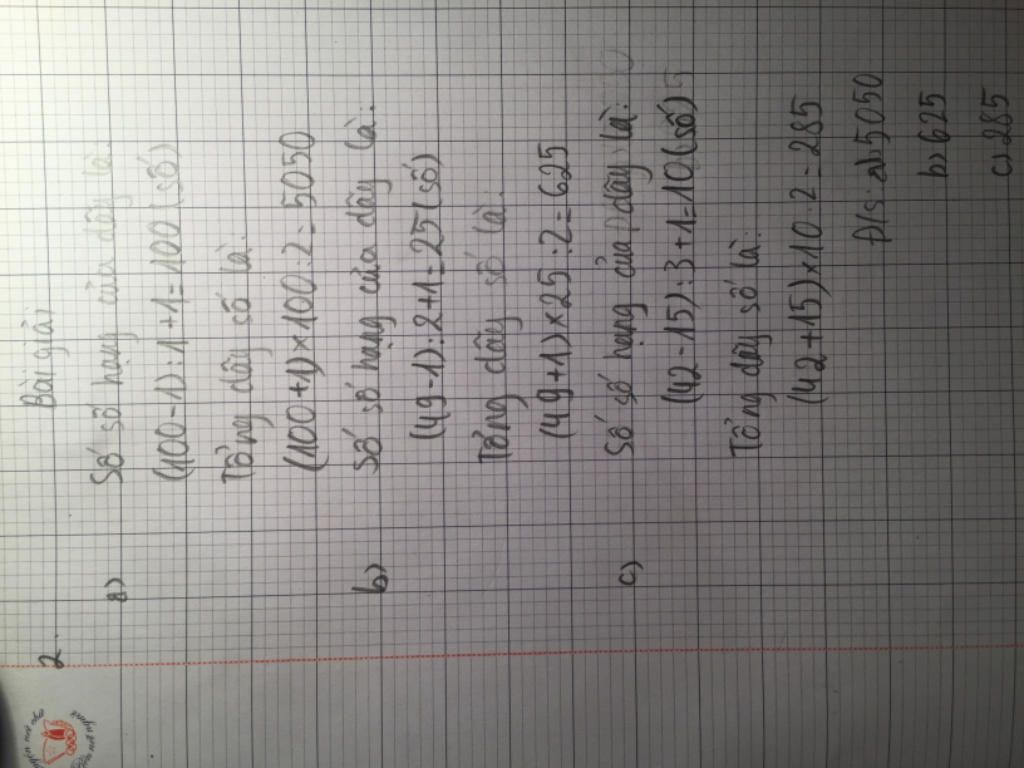 2.
Bài giải
a) Số số hạng của dãy là:
(100-1):1+1=100(số)
Tổng dãy số là:
(100+1)×100:2=5050
b) Số số hạng của dãy là:
(49-1):2+1=25(số)
Tổng dãy số là:
(49+1)×25:2=625
c) Số số hạng của dãy là:
(42-15):3+1=10(số)
Tổng dãy số là:
(42+15)×10:2=285
Đ/s: a) 5050
b) 625
c) 285